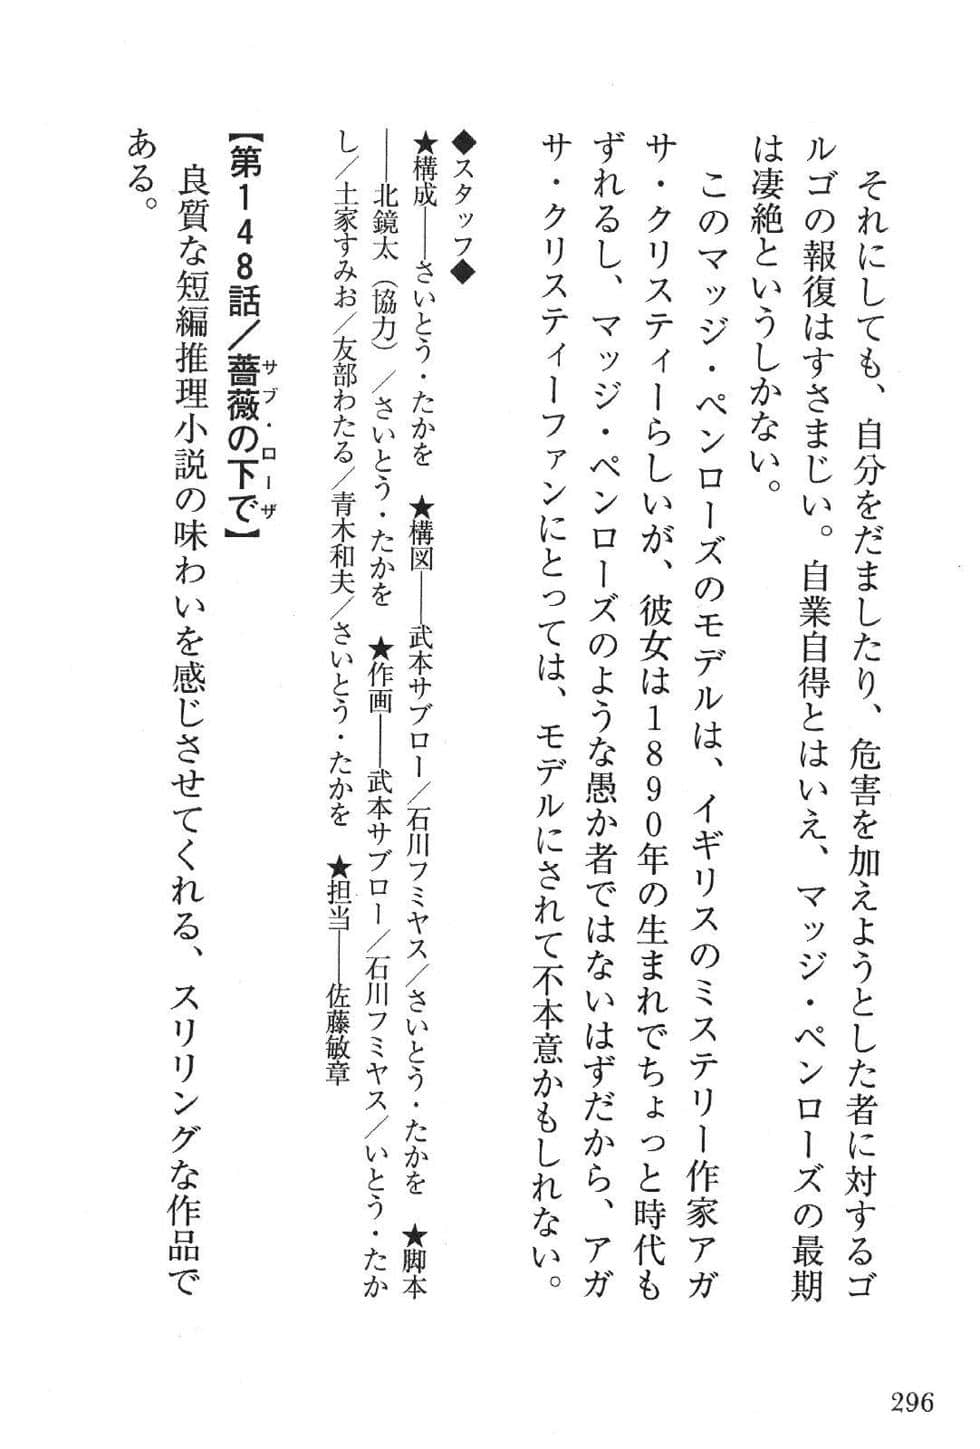 それにしても、自分をだましたり、危害を加えようとした者に対するゴ
ルゴの報復はすさまじい。自業自得とはいえ、マッジ・ペンローズの最期
は凄絶というしかない。
このマッジ・ペンローズのモデルは、イギリスのミステリー作家アガ
サ・クリスティーらしいが、彼女は1890年の生まれでちょっと時代も
ずれるし、マッジ・ペンローズのような愚か者ではないはずだから、アガ
サ・クリスティーファンにとっては、モデルにされて不本意かもしれない。
◆スタッフ◆
★構成――さいとう・たかを ★構図――武本サブロー／石川フミヤス／さいとう・たかを ★脚本
――北鏡太（協力）／さいとう・たかを ★作画――武本サブロー／石川フミヤス／いとう・たか
し／土家すみお／友部わたる／青木和夫／さいとう・たかを ★担当――佐藤敏章
【第148話／薔薇の下で】
サブ・ローザ
良質な短編推理小説の味わいを感じさせてくれる、スリリングな作品で
ある。
296